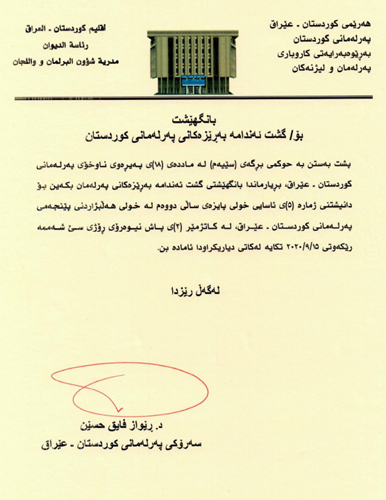 هەرێمی کوردستان ـ عێراق
پەرلەمانی کوردستان
بەڕێوەبەرایەتی کاروباری
پەرلەمان و لیژنەکان
أقليم كوردستان ـ العراق
رئاسة الديوان
مديرية شؤون البرلمان واللجان
بانگهێشت
بۆ/ گشت ئەندامە بەڕێزەکانی پەرلەمانی کوردستان
پشت بەستن بە حوکمی برگەی (سێیەم) لە ماددەی (١٨)ی پەیڕەوی ناوخۆی پەرلەمانی
کوردستان ـ عێراق، بڕیارماندا بانگهێشتی گشت ئەندامە بەڕێزەکانی پەرلەمان بکەین بۆ
دانیشتنی ژمارە (٥)ی ئاسایی خولی پایزەی ساڵی دووەم لە خولی هەڵبژاردنی پێنجەمی
پەرلەمانی کوردستان ـ عێراق، لە کاتژمێر (٢)ی پاش نیوەڕۆی ڕۆژی سێ شەممە
رێکەوتی ٢٠٢٠/٩/١٥ تکایە لەکاتی دیاریکراودا ئامادە بن.
لەگەڵ رێزدا
د. رێواز فایق حسێن
سەرۆکی پەرلەمانی کوردستان ـ عێراق